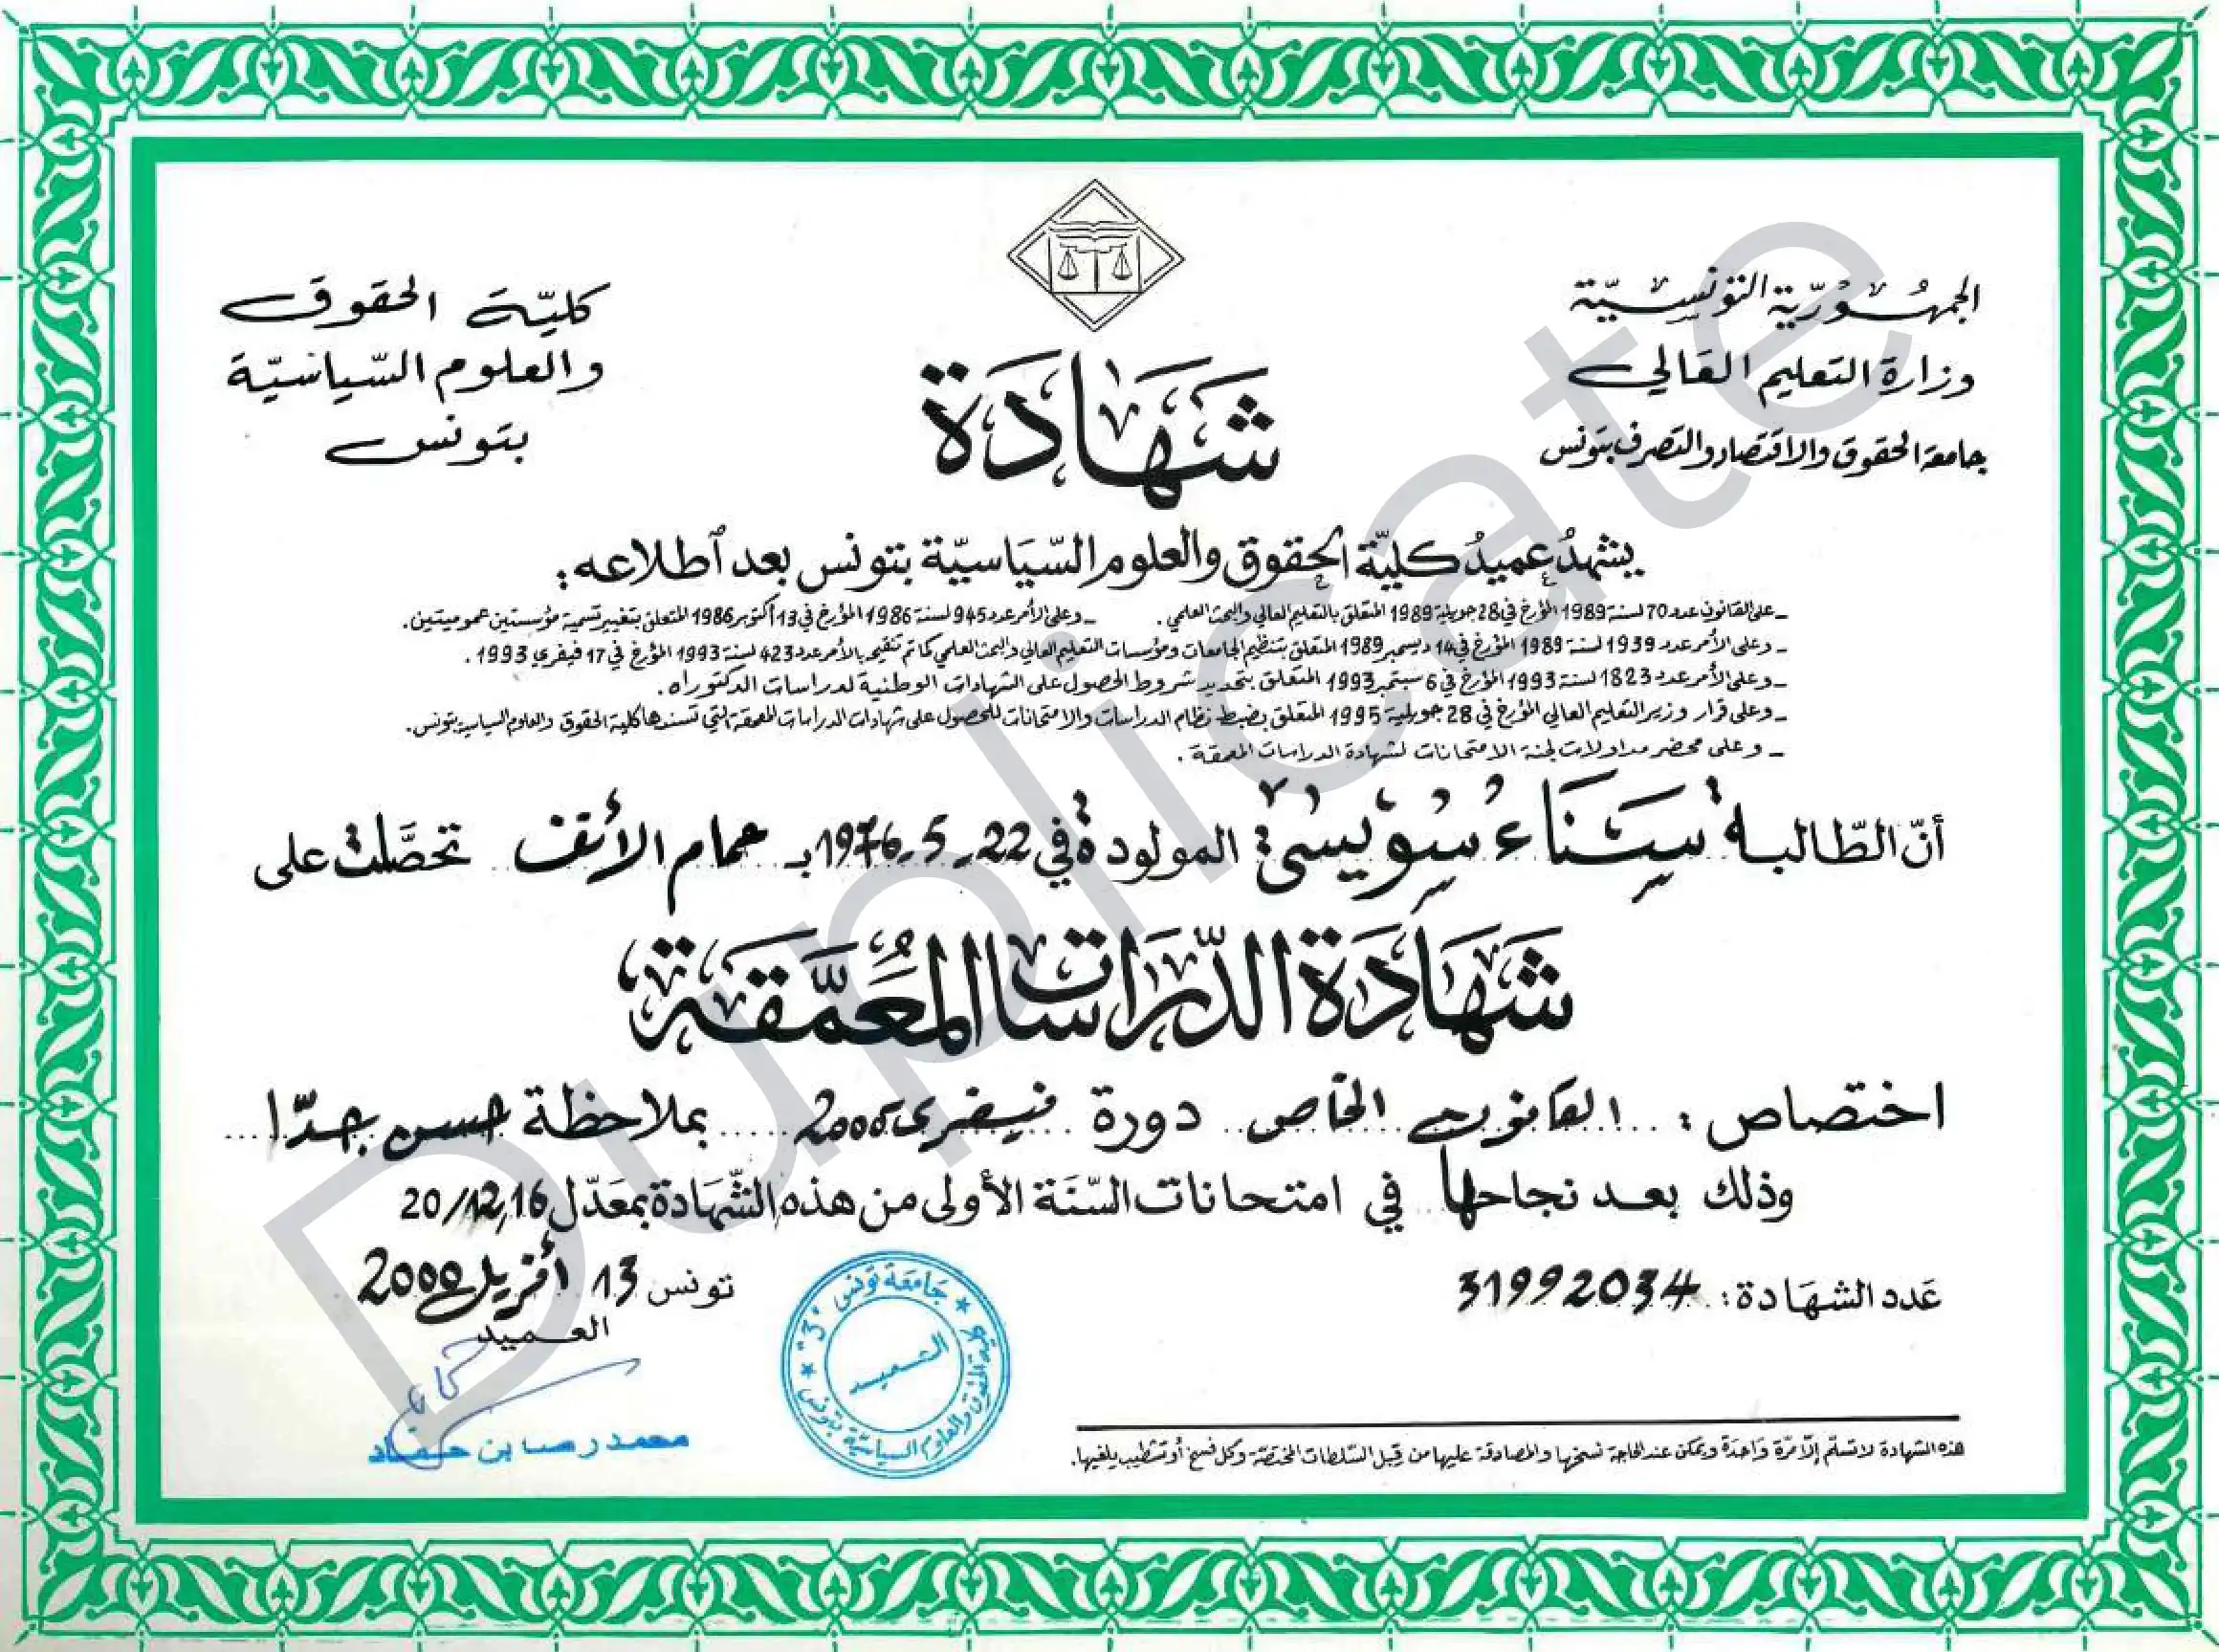 الجمهوريّة التونسيّة
وزارة التعليم العالي
جامعة الحقوق والاقتصاد والتصرف بتونس
كليّة الحقوق
والعلوم السّياسيّة
بتونس
شهادة
يشهد عميد كليّة الحقوق والعلوم السّياسيّة بتونس بعد اطلاعه:
ـ على القانون عدد 70 لسنة 1989 المؤرخ في 28 جويلية 1989 المتعلق بالتعليم العالي والبحث العلمي. ـ وعلى الأمر عدد 945 لسنة 1986 المؤرخ في 13 أكتوبر 1986 المتعلق بتغيير تسمية مؤسستين عموميتين.
ـ وعلى الأمر عدد 1939 لسنة 1989 المؤرخ في 14 ديسمبر 1989 المتعلق بتنظيم الجامعات ومؤسسات التعليم العالي والبحث العلمي كما تم تنقيحه بالأمر عدد 423 لسنة 1993 المؤرخ في 17 فيفري 1993.
ـ وعلى الأمر عدد 1823 لسنة 1993 المؤرخ في 6 سبتمبر 1993 المتعلق بتحديد شروط الحصول على الشهادات الوطنية لدراسات الدكتوراه.
ـ وعلى قرار وزير التعليم العالي المؤرخ في 28 جويلية 1995 المتعلق بضبط نظام الدراسات والامتحانات للحصول على شهادات الدراسات المعمقة التي تسندها كلية الحقوق والعلوم السياسية بتونس.
ـ وعلى محضر مداولات لجنة الامتحانات لشهادة الدراسات المعمقة.
أنّ الطّالبة سناء سويسي المولودة في 22-5-1976 بـ حمام الأنف تحصّلت على
شهادة الدّراسات المعمّقة
اختصاص: القانون الخاص دورة فيفري 2000 بملاحظة حسن جدّا
وذلك بعد نجاحها في امتحانات السّنة الأولى من هذه الشّهادة بمعدّل 12,16/20
عدد الشهادة: 31992034
تونس 13 أفريل 2000
العميد
محمد رضا بن حمّاد
جامعة تونس "3"
كلية الحقوق والعلوم السياسيّة بتونس
العميد
هذه الشهادة لا تسلّم إلاّ مرّة واحدة ويمكن عند الحاجة نسخها والمصادقة عليها من قبل السّلطات المختصّة وكل فسخ أو تشطيب يلغيها.
Duplicate